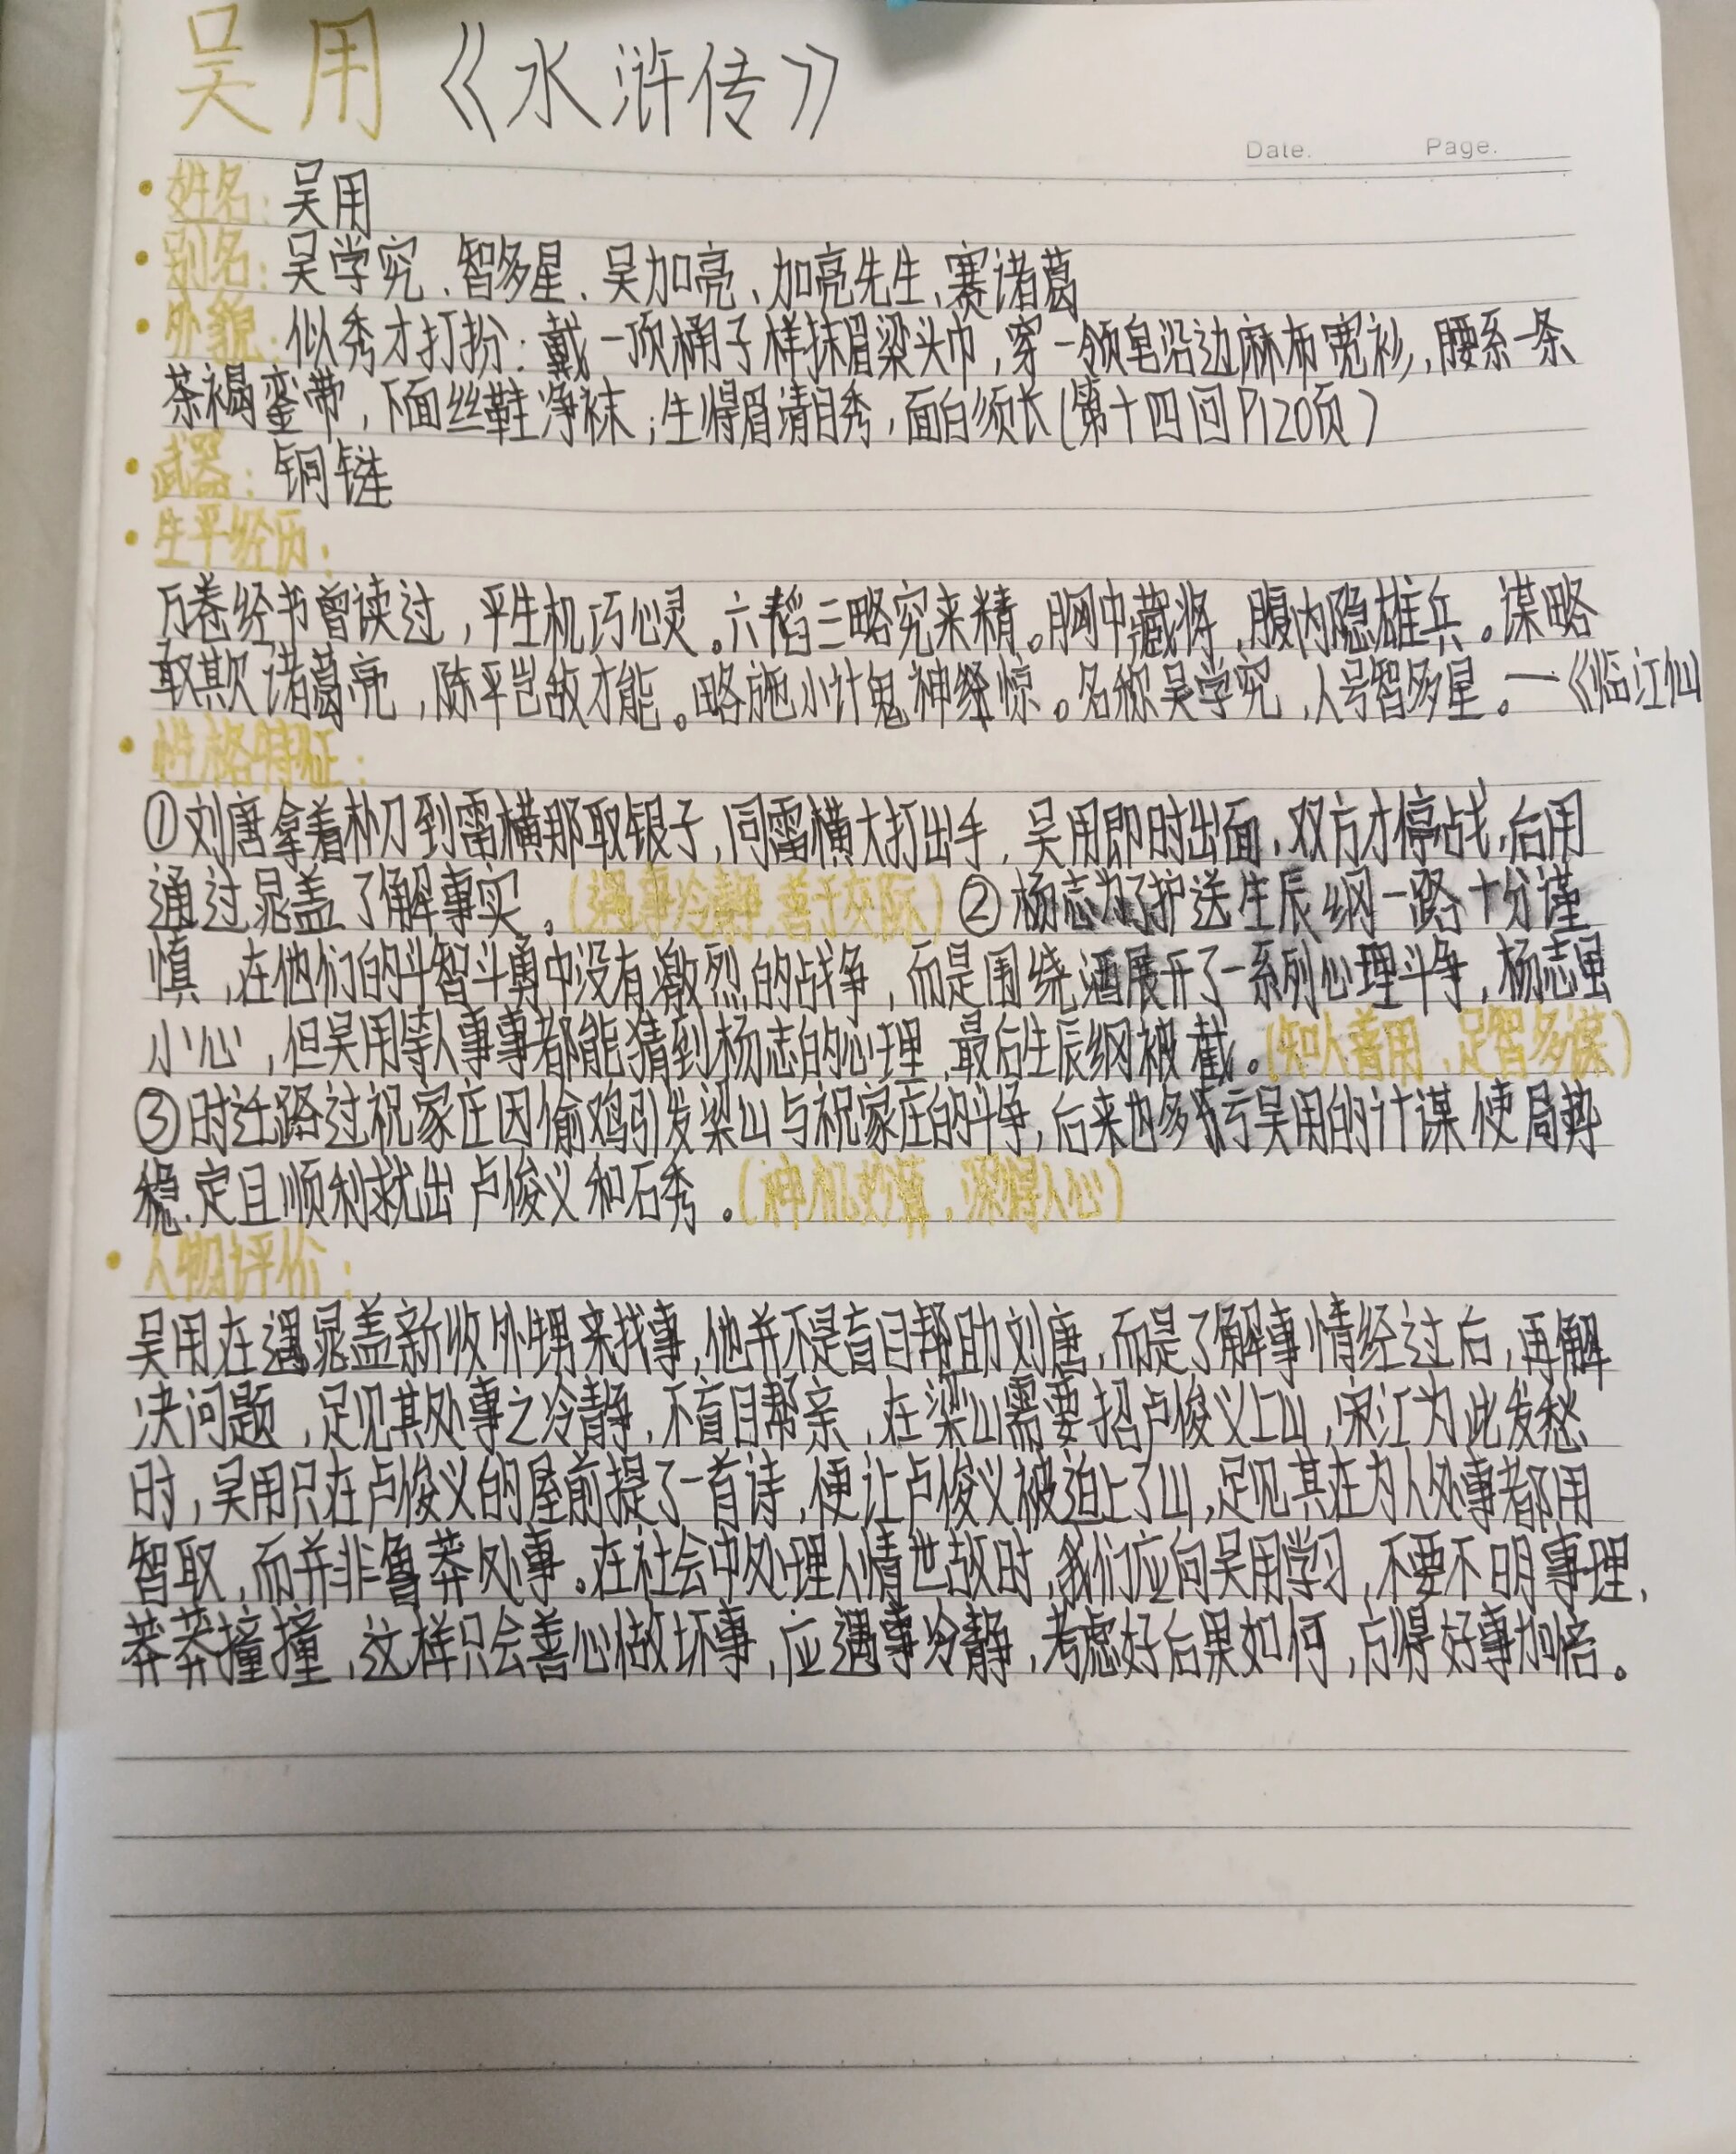 吴用《水浒传》
Date. Page.
• 姓名：吴用
• 别名：吴学究、智多星、吴加亮、加亮先生、赛诸葛
• 外貌：似秀才打扮：戴一顶桶子样抹眉梁头巾，穿一领皂沿边麻布宽衫，腰系一条
茶褐銮带，下面丝鞋净袜；生得眉清目秀，面白须长（第十四回P120页）
• 武器：铜链
• 生平经历：
万卷经书曾读过，平生机巧心灵。六韬三略究来精。胸中藏将，腹内隐雄兵。谋略
敢欺诸葛亮，陈平岂敌才能。略施小计鬼神惊。名称吴学究，人号智多星。—《临江仙
• 性格特征：
①刘唐拿着朴刀到雷横那取银子，同雷横大打出手，吴用即时出面，双方才停战，后用
通过晁盖了解事实。（遇事冷静，善于交际）②杨志为了护送生辰纲一路十分谨
慎，在他们的斗智斗勇中没有激烈的战争，而是围绕酒展开了一系列心理斗争，杨志虽
小心，但吴用等人事事都能猜到杨志的心理，最后生辰纲被截。（知人善用，足智多谋）
③时迁路过祝家庄因偷鸡引发梁山与祝家庄的斗争，后来也多亏吴用的计谋使局势
稳定且顺利救出卢俊义和石秀。（神机妙算，深得人心）
• 人物评价：
吴用在遇晁盖新收外甥来找事，他并不是盲目帮助刘唐，而是了解事情经过后，再解
决问题，足见其处事之冷静，不盲目帮亲，在梁山需要招卢俊义上山，宋江为此发愁
时，吴用只在卢俊义的屋前提了一首诗，便让卢俊义被迫上了山，足见其在为人处事都用
智取，而并非鲁莽处事。在社会中处理人情世故时，我们应向吴用学习，不要不明事理，
莽莽撞撞，这样只会善心做坏事，应遇事冷静，考虑好后果如何，方得好事加倍。